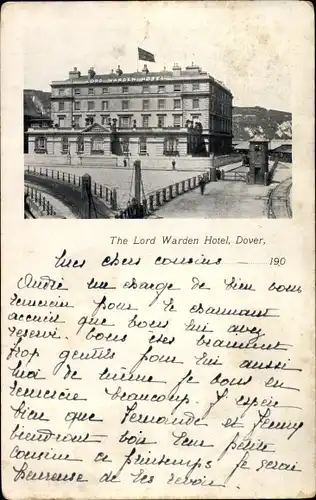 LORD WARDEN HOTEL
The Lord Warden Hotel, Dover,
Mes chers cousins 190
André me charge de bien vous
remercier pour le charmant
accueil que vous lui avez
réservé. Vous êtes vraiment
trop gentils pour lui aussi
moi de même je vous en
remercie beaucoup. J'espère
bien que Fernande et Jenny
viendront voir leur petite
cousine au printemps je serai
heureuse de les revoir.